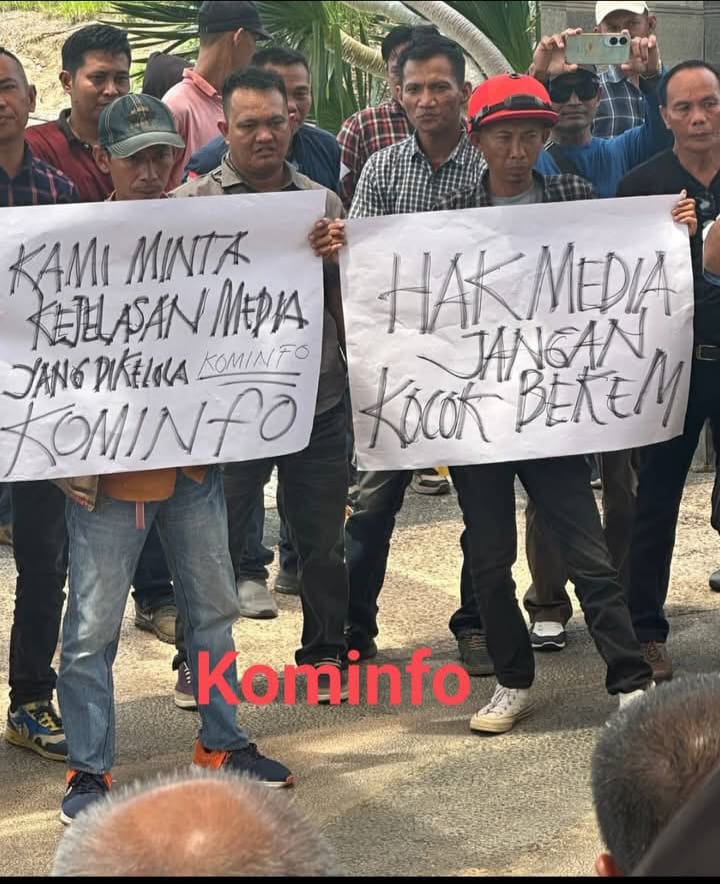 KAMI MINTA
KEJELASAN MEDIA
YANG DIKELOLA KOMINFO
KOMINFO
HAK MEDIA
JANGAN
KOCOK BEKEM
Kominfo